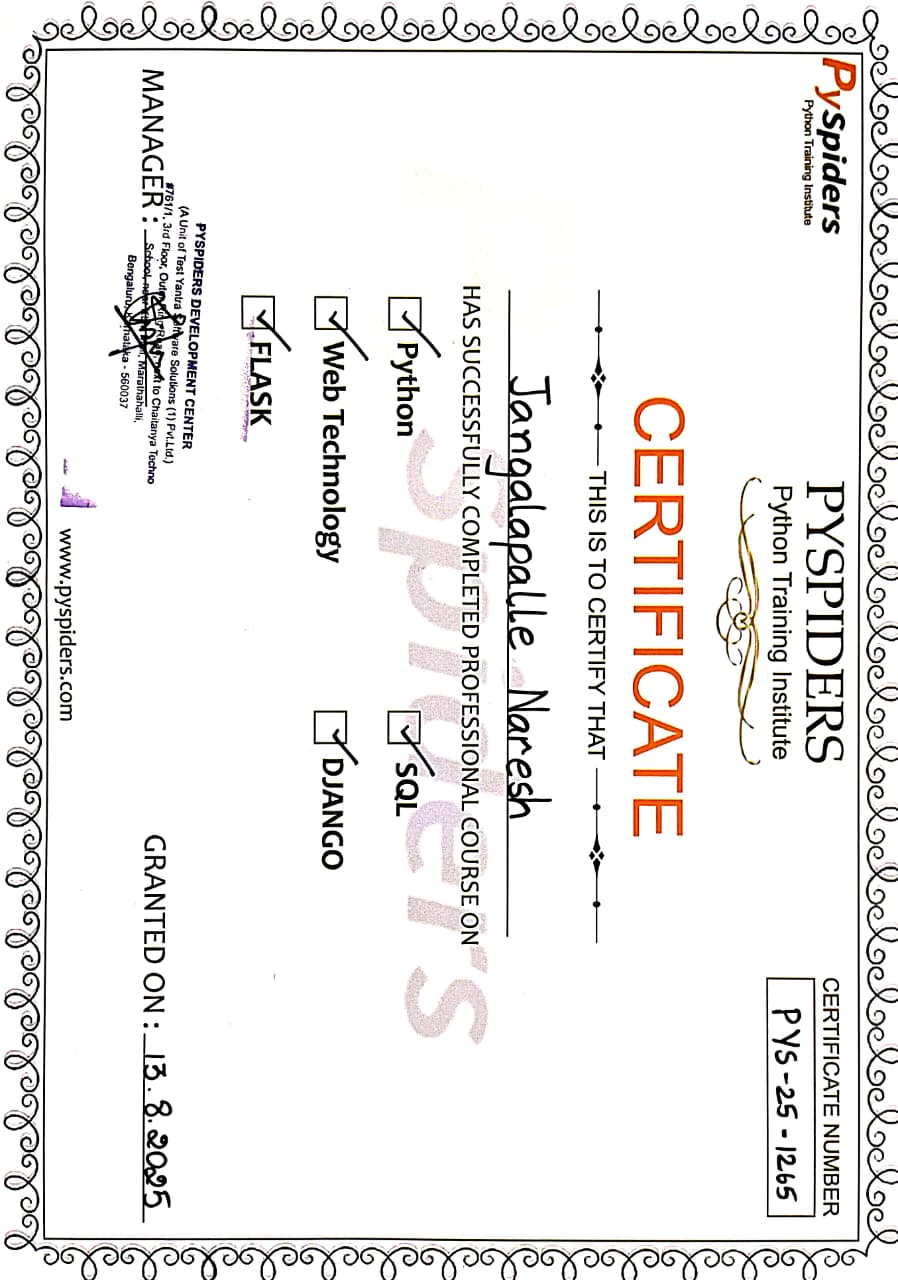 PySpiders
Python Training Institute
PYSPIDERS
Python Training Institute
CERTIFICATE NUMBER
PYS-25-1265
CERTIFICATE
THIS IS TO CERTIFY THAT
Jangalapalle Naresh
Spiders
HAS SUCCESSFULLY COMPLETED PROFESSIONAL COURSE ON
Python
SQL
Web Technology
DJANGO
FLASK
PYSPIDERS DEVELOPMENT CENTER
(A Unit of Test Yantra Software Solutions (1) Pvt.Ltd.)
#761/1, 3rd Floor, Outer Ring Road, next to Chaitanya Techno
School, near Marathahalli,
Bengaluru, Karnataka - 560037
MANAGER :
GRANTED ON : 13.8.2025
www.pyspiders.com